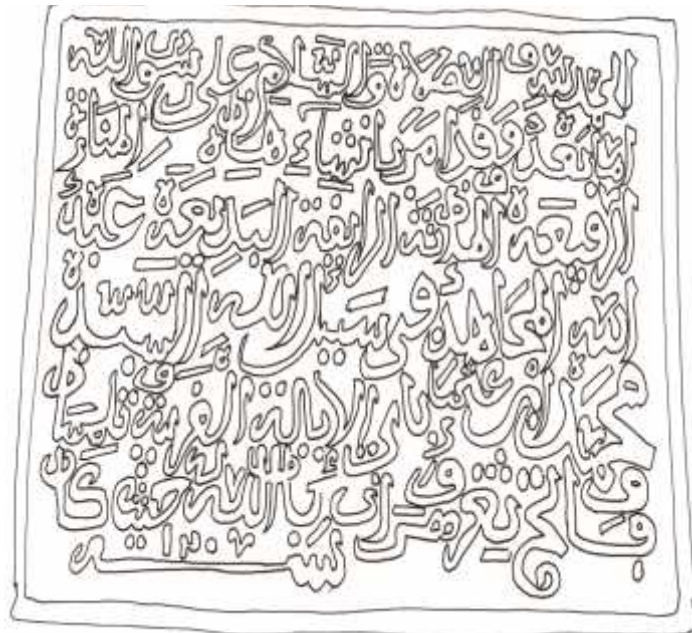 الحمد لله و الصلاة و السلام على رسول الله
اما بعد وقد امر بانشاء هاذه المنارة
الانيقة البديعة عبد
الله المجاهد في سبيل الله السيد
محمد ابن عثمان باي الايالة الغربية و تلمسان
فاتح ثغر وهران الله
سنة ١٢٠٦